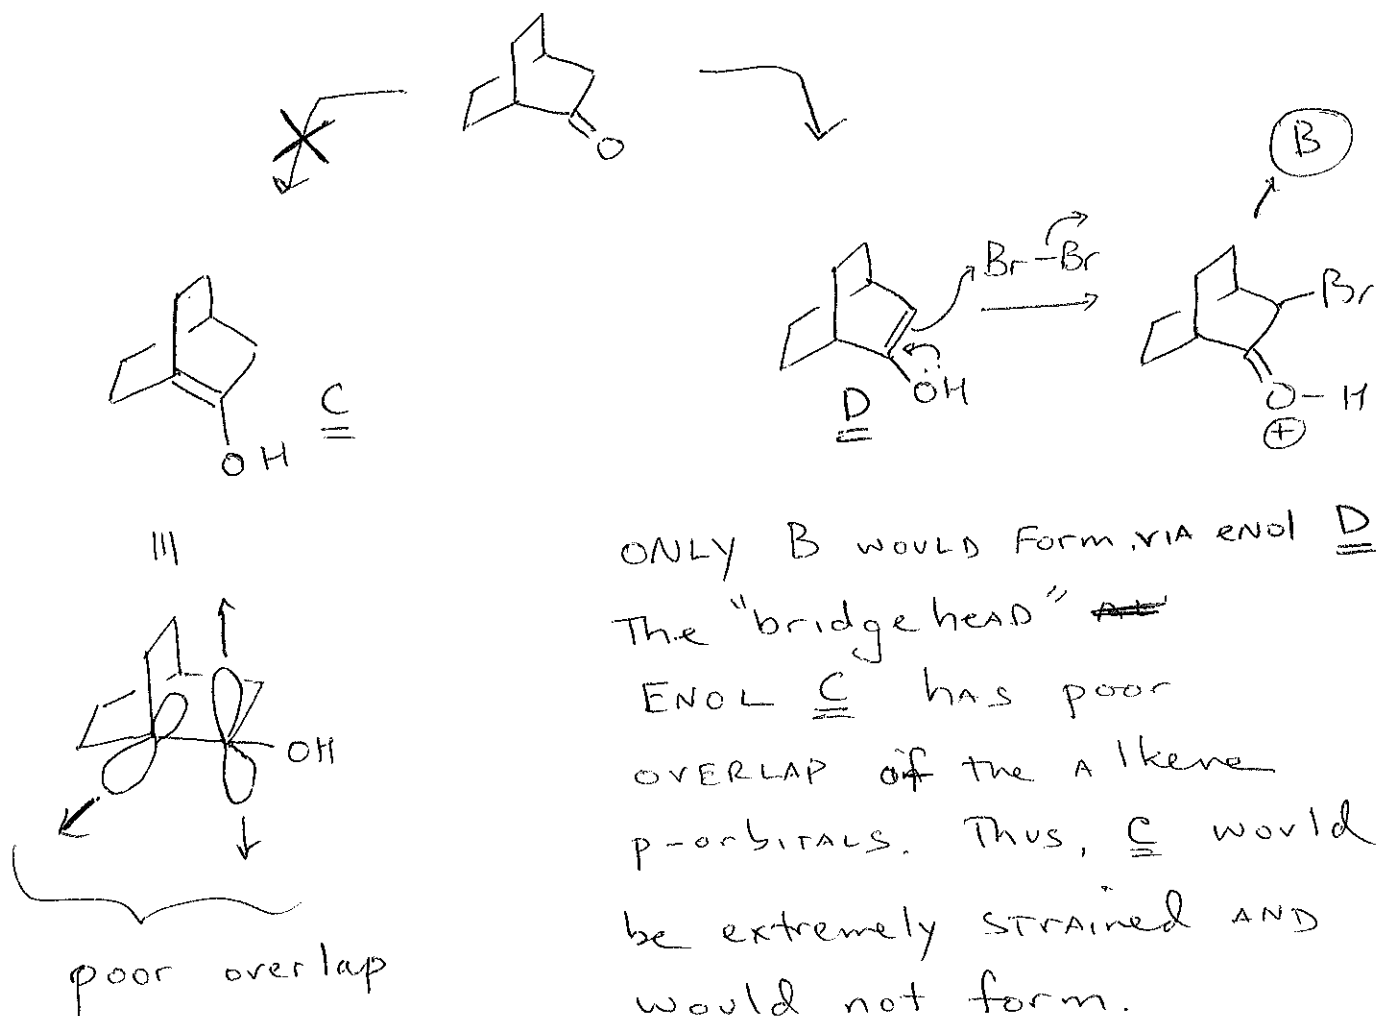 O
B
Br-Br
Br
C
OH
D
ÖH
O-H
+
OH
poor overlap
ONLY B WOULD Form, VIA enol D
The "bridgeheAD"
ENOL C hAs poor
OVERLAP of the Alkene
p-orbitALs. Thus, C would
be extremely STrAined AND
would not form.